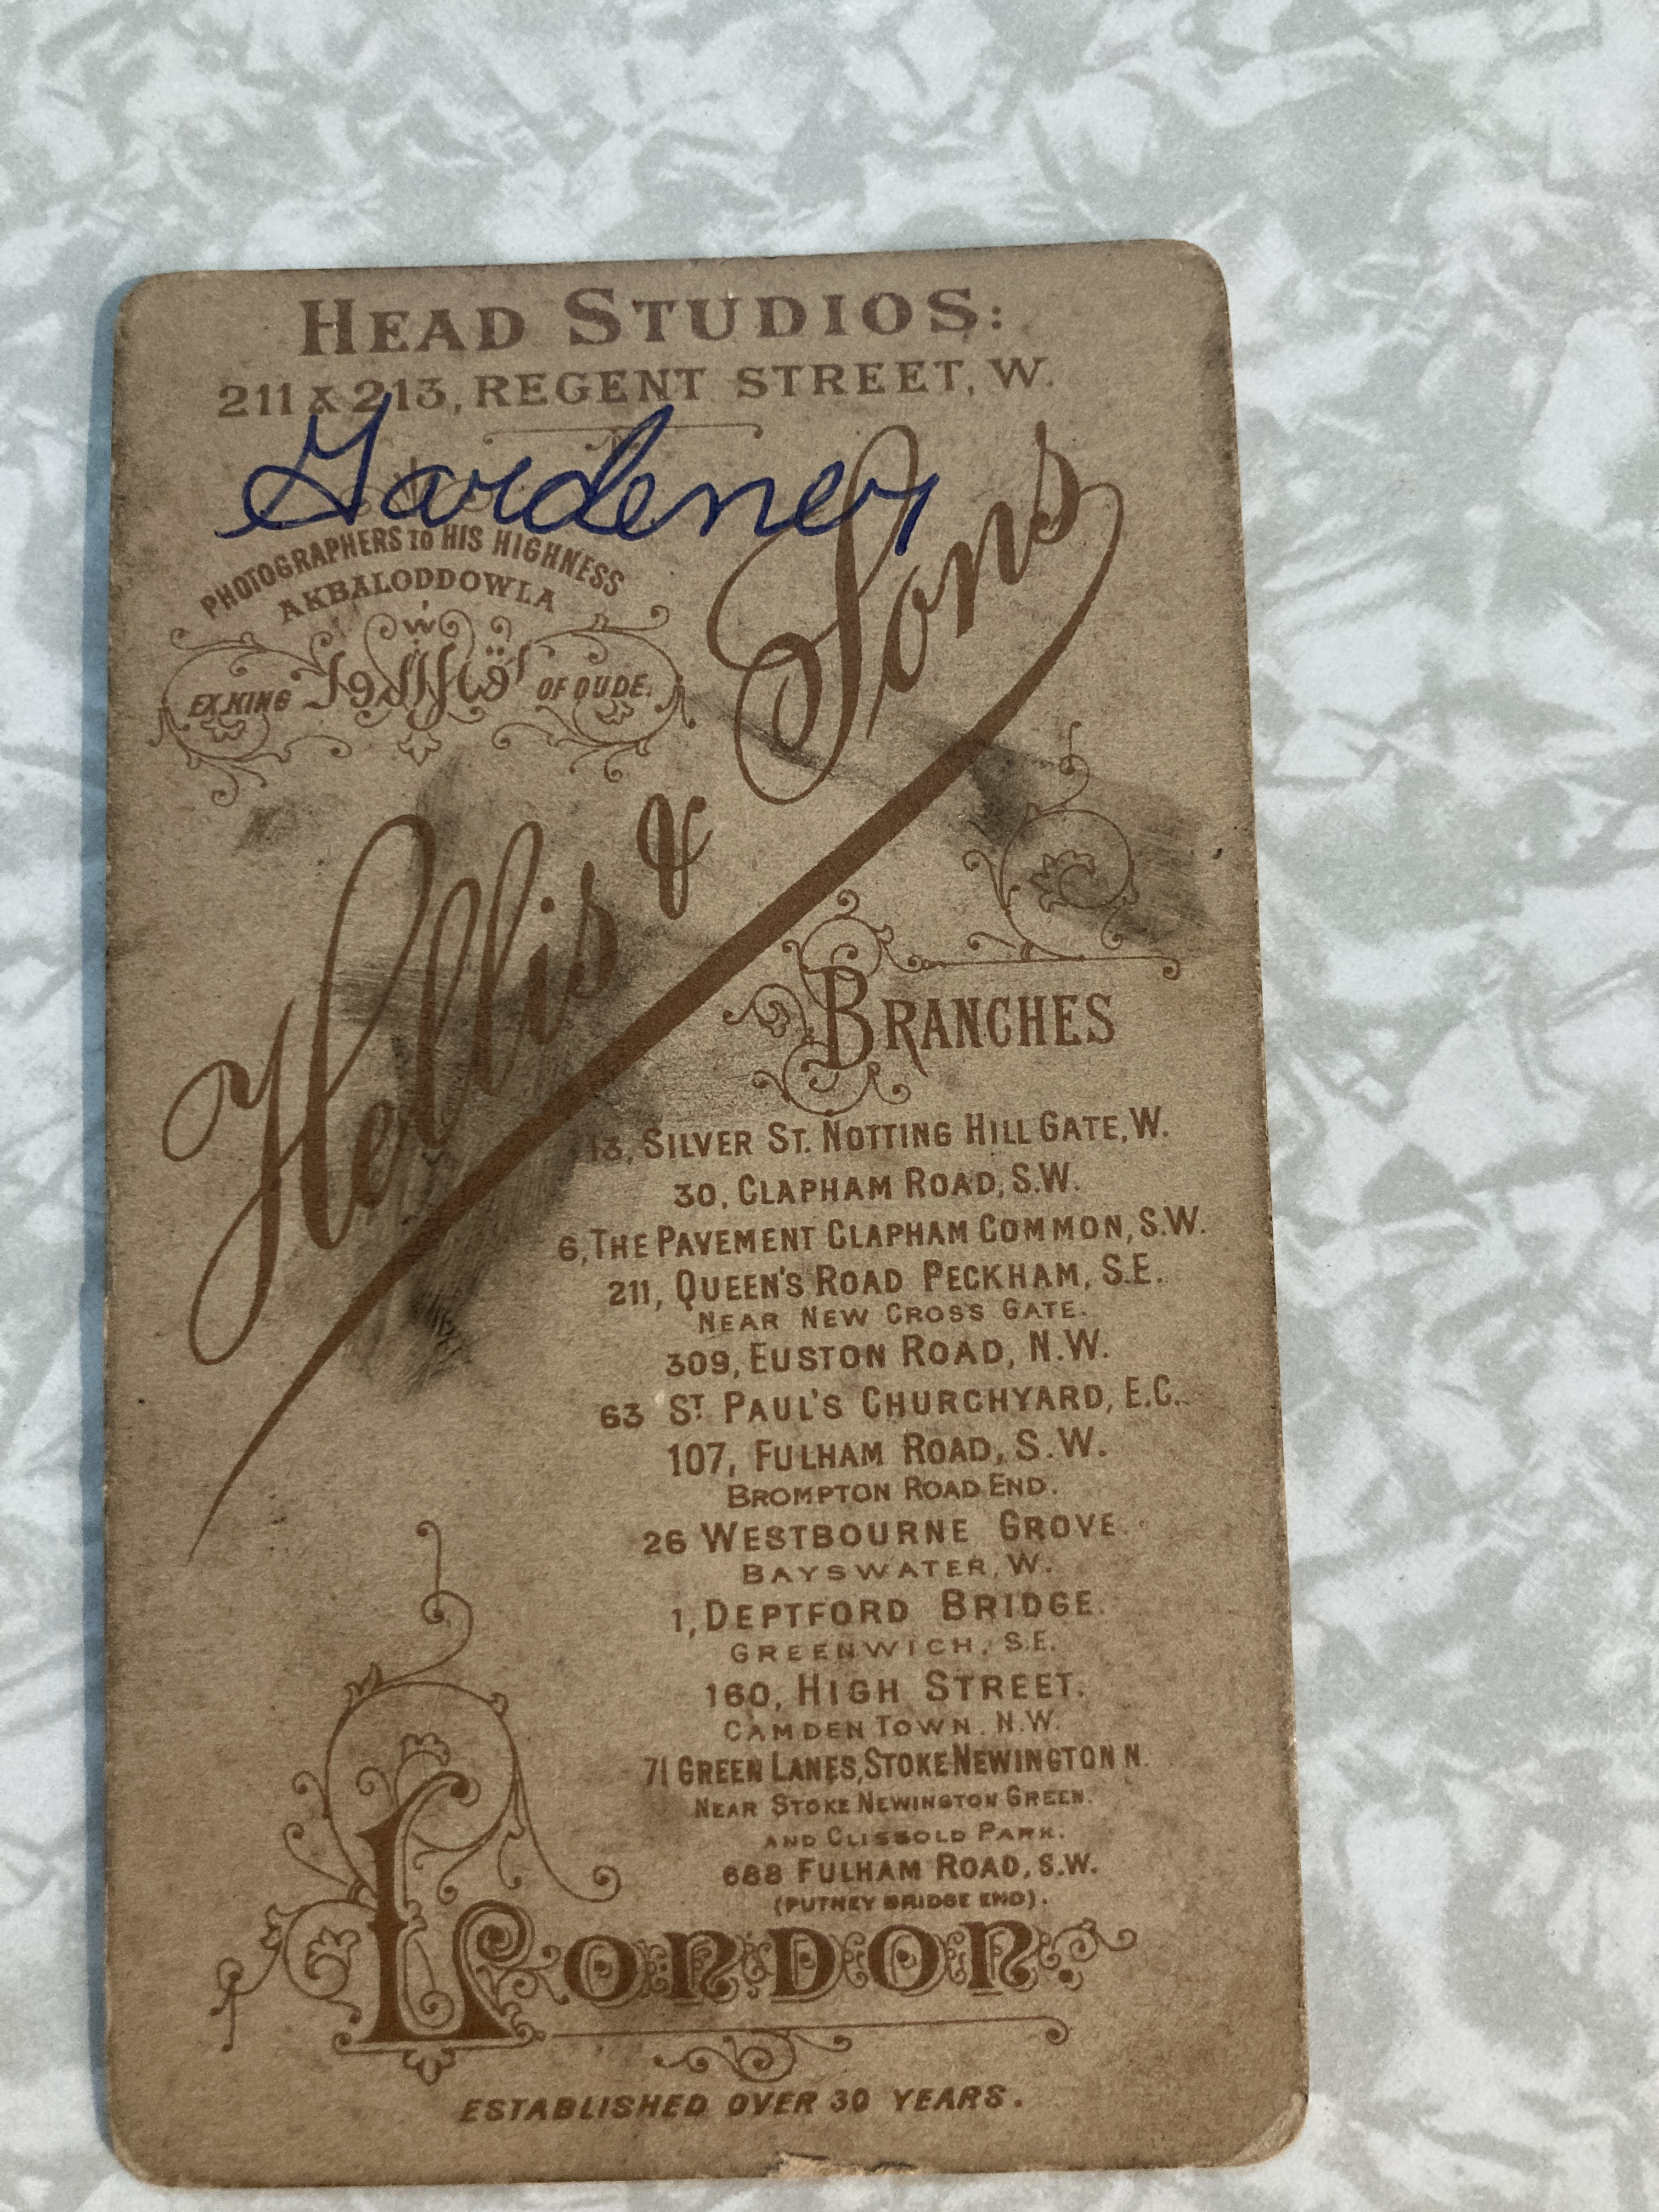 HEAD STUDIOS:
211 & 213, REGENT STREET, W.
Gardener
PHOTOGRAPHERS TO HIS HIGHNESS
AKBALODDOWLA
EX.KING OF OUDE.
Hellis & Sons
BRANCHES
13, SILVER ST. NOTTING HILL GATE, W.
30, CLAPHAM ROAD, S.W.
6, THE PAVEMENT CLAPHAM COMMON, S.W.
211, QUEEN'S ROAD PECKHAM, S.E.
NEAR NEW CROSS GATE.
309, EUSTON ROAD, N.W.
63 ST. PAUL'S CHURCHYARD, E.C.
107, FULHAM ROAD, S.W.
BROMPTON ROAD END.
26 WESTBOURNE GROVE.
BAYSWATER, W.
1, DEPTFORD BRIDGE.
GREENWICH, S.E.
160, HIGH STREET.
CAMDEN TOWN. N.W.
71 GREEN LANES, STOKE NEWINGTON N.
NEAR STOKE NEWINGTON GREEN.
AND CLISSOLD PARK.
688 FULHAM ROAD, S.W.
(PUTNEY BRIDGE END).
LONDON
ESTABLISHED OVER 30 YEARS.